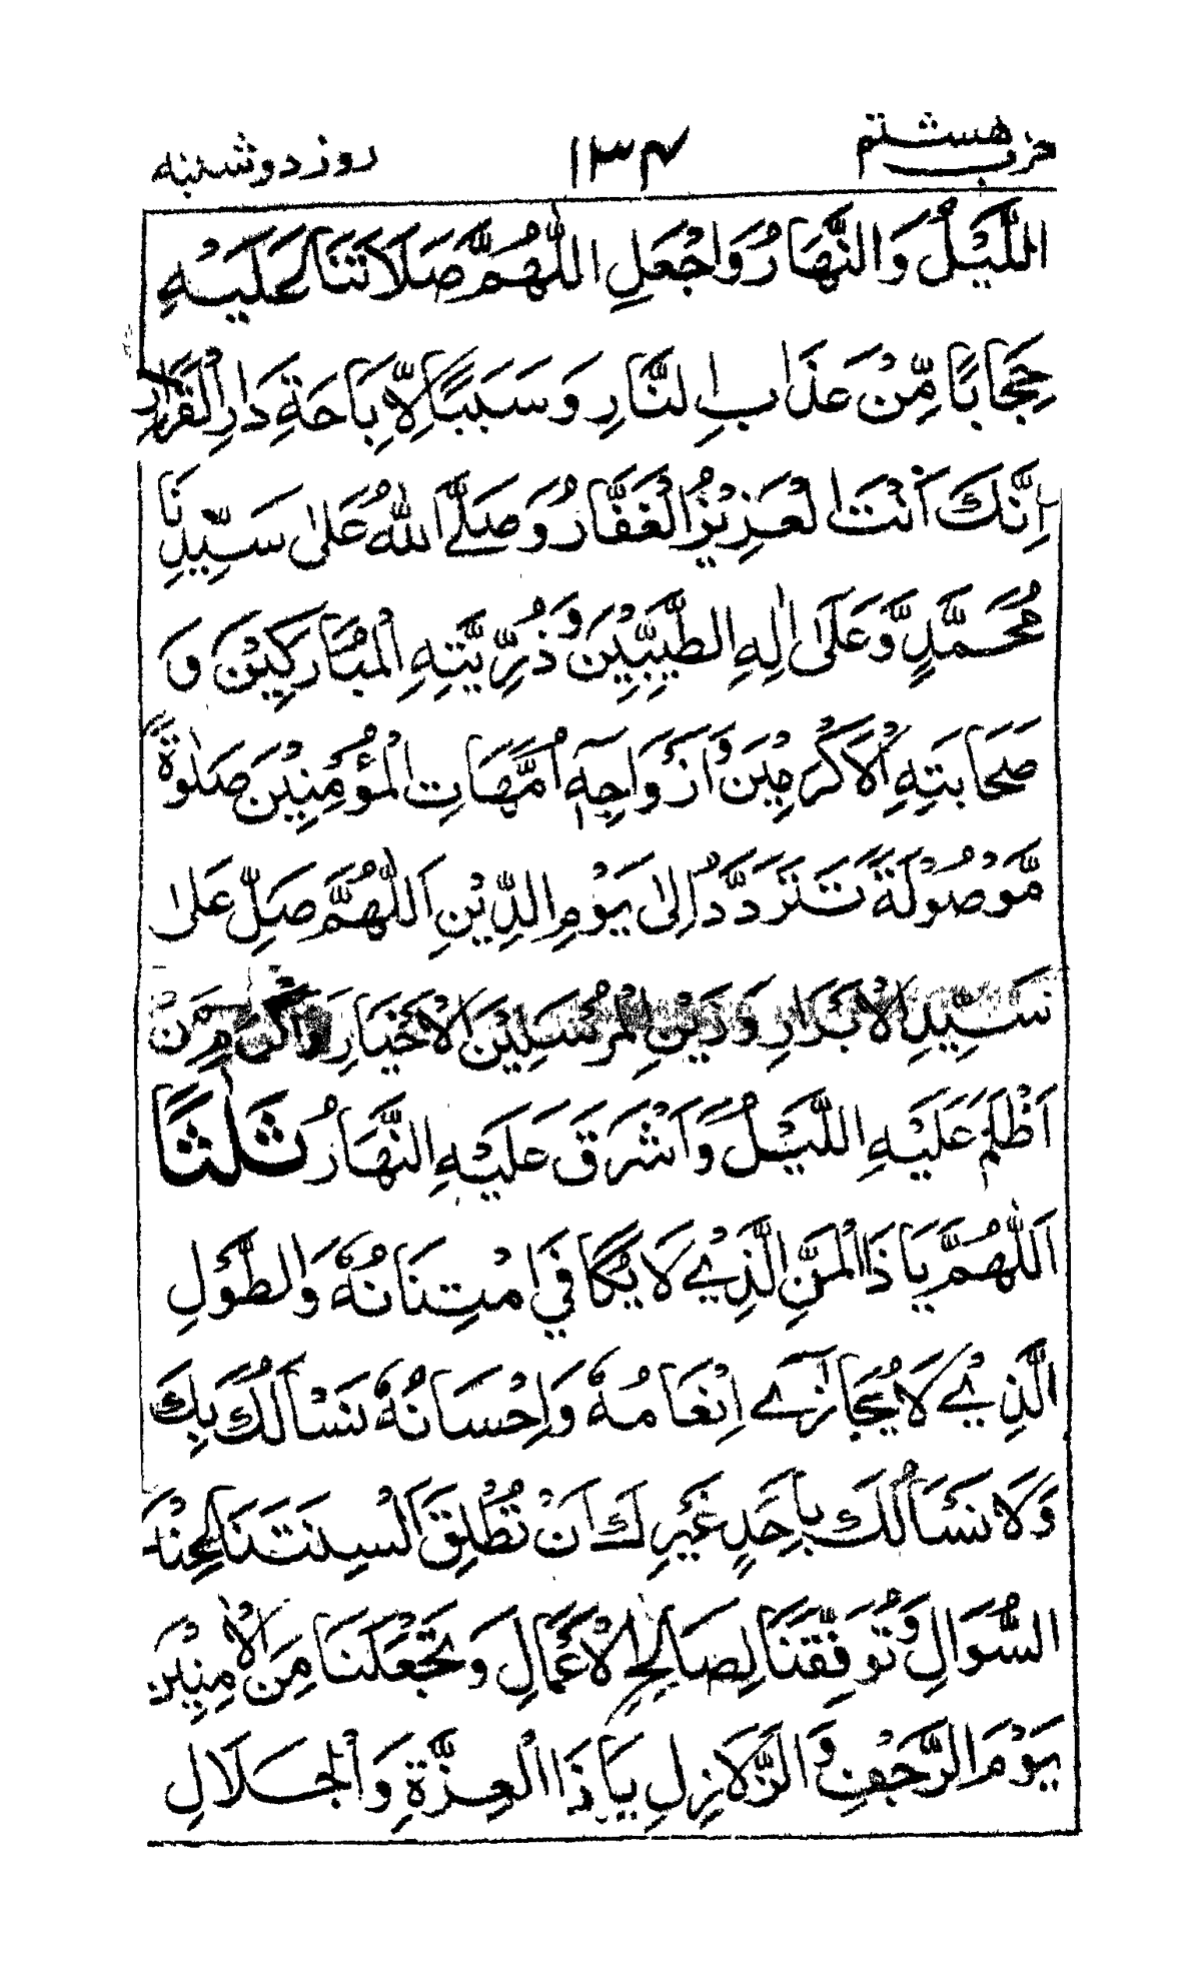 حزب هشتم ۱۳۴ روز دوشنبه
اللَّيْلُ وَالنَّهَارُ وَاجْعَلِ اللّٰهُمَّ صَلَاتَنَا عَلَيْهِ
حِجَابًا مِّنْ عَذَابِ النَّارِ وَسَبَبًا لِّاِبَاحَةِ دَارِ الْقَرَارِ
اِنَّكَ اَنْتَ الْعَزِيْزُ الْغَفَّارُ وَصَلَّى اللّٰهُ عَلٰى سَيِّدِنَا
مُحَمَّدٍ وَّعَلٰى اٰلِهِ الطَّيِّبِيْنَ وَذُرِّيَّتِهِ الْمُبَارَكِيْنَ وَ
صَحَابَتِهِ الْاَكْرَمِيْنَ وَاَزْوَاجِهٖٓ اُمَّهَاتِ الْمُؤْمِنِيْنَ صَلٰوةً
مَّوْصُوْلَةً تَتَرَدَّدُ اِلٰى يَوْمِ الدِّيْنِ اَللّٰهُمَّ صَلِّ عَلٰى
سَيِّدِ الْاَبْرَارِ وَزَيْنِ الْمُرْسَلِيْنَ الْاَخْيَارِ وَاَكْرَمِ مَنْ
اَظْلَمَ عَلَيْهِ اللَّيْلُ وَاَشْرَقَ عَلَيْهِ النَّهَارُ ثَلٰثًا
اَللّٰهُمَّ يَا ذَا الْمَنِّ الَّذِيْ لَا يُكَافِيْ امْتِنَانُهٗ وَالطَّوْلِ
الَّذِيْ لَا يُجَازٰى اِنْعَامُهٗ وَاِحْسَانُهٗ نَسْاَلُكَ بِكَ
وَلَا نَسْاَلُكَ بِاَحَدٍ غَيْرِكَ اَنْ تُطْلِقَ اَلْسِنَتَنَا عِنْدَ
السُّوَالِ وَتُوَفِّقَنَا لِصَالِحِ الْاَعْمَالِ وَتَجْعَلَنَا مِنَ الْاٰمِنِيْنَ
يَوْمَ الرَّجْفِ وَالزَّلَازِلِ يَا ذَا الْعِزَّةِ وَالْجَلَالِ